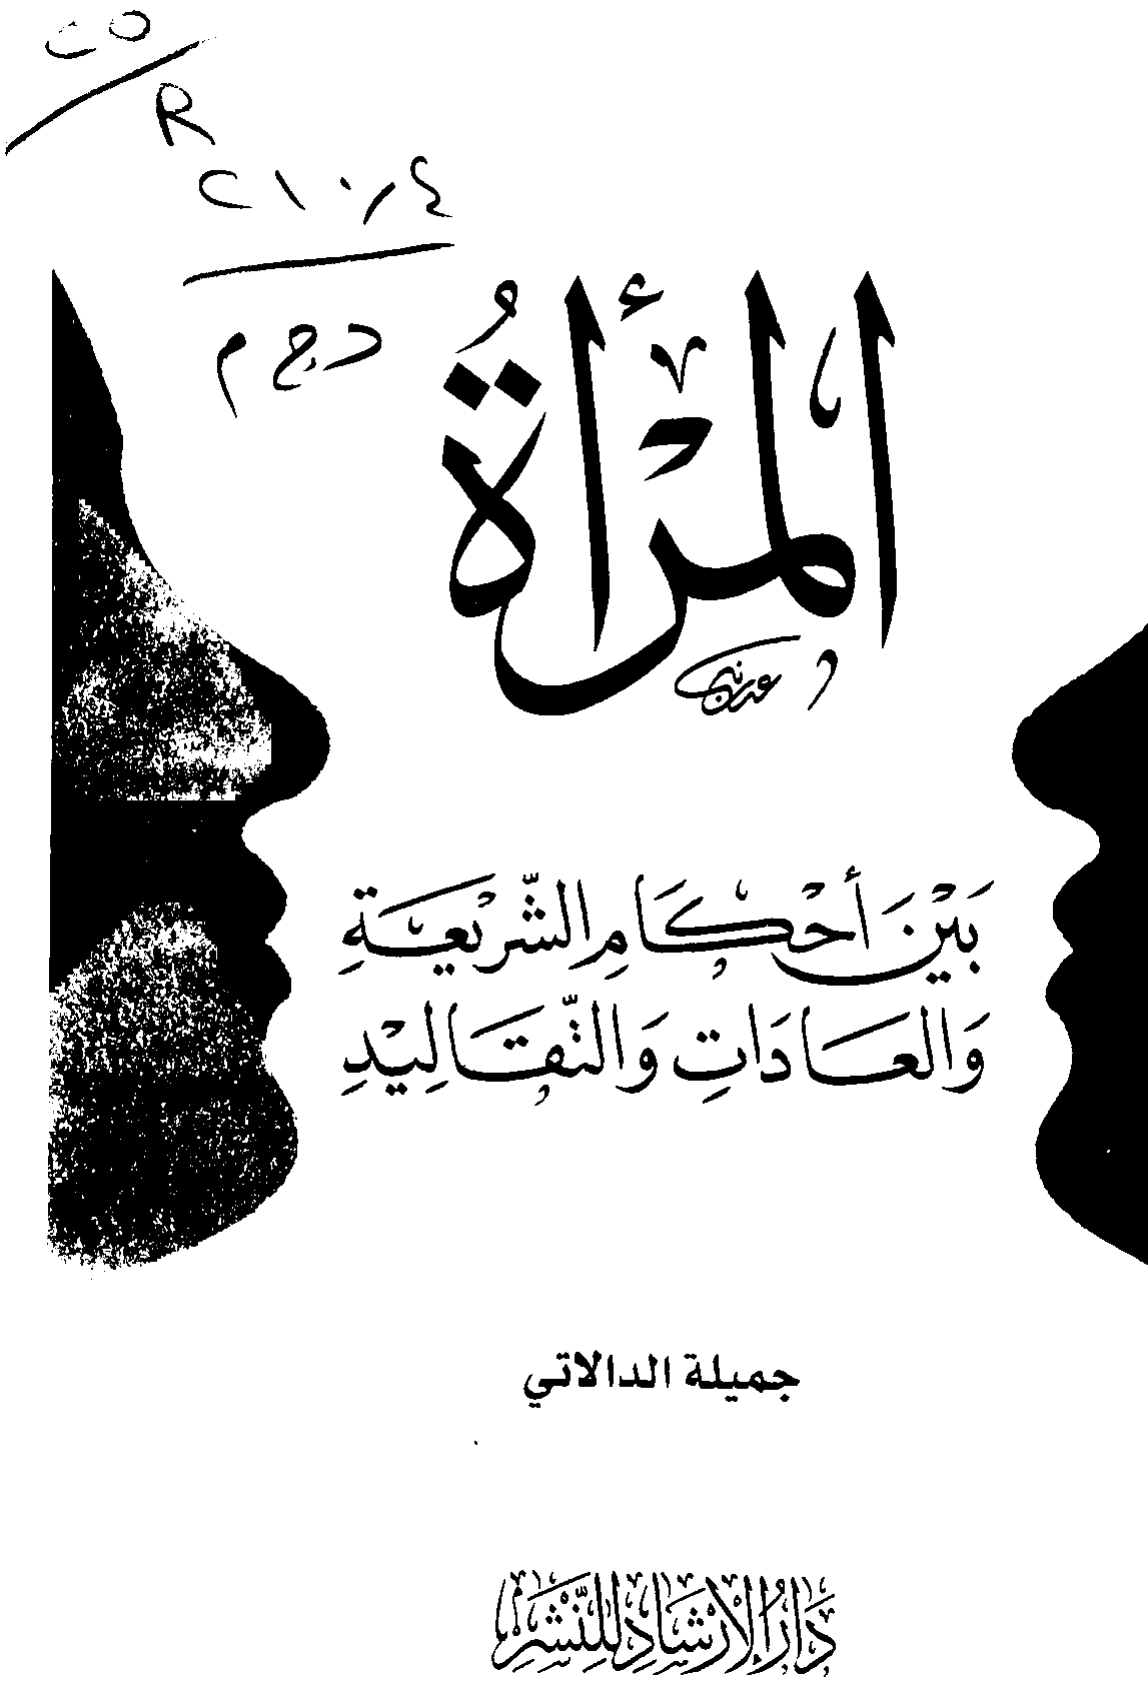 R
٢١٠,٤
د ج م
المرأةُ
بَيْنَ أَحْكَامِ الشَّرِيْعَةِ
وَالعَادَاتِ وَالتَّقَالِيْدِ
جميلة الدالاتي
دَارُ الإِرْشَادِ لِلنَّشْرِ